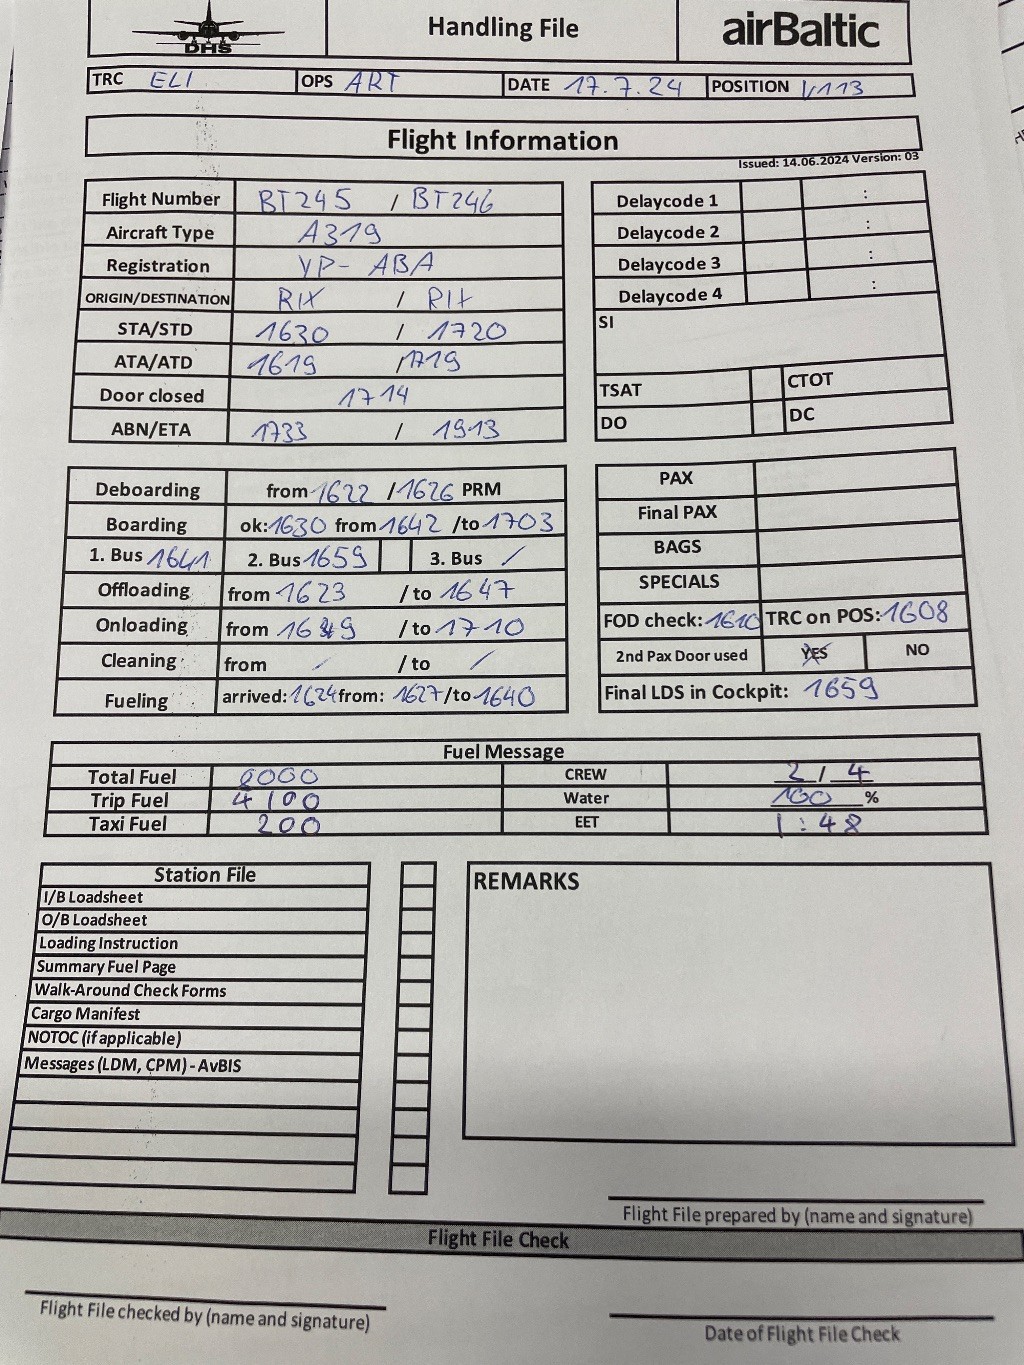 DHS
Handling File
airBaltic
TRC ELI OPS ART DATE 17.7.24 POSITION V113
Flight Information
Issued: 14.06.2024 Version: 03
Flight Number BT245 / BT246
Aircraft Type A319
Registration YP-ABA
ORIGIN/DESTINATION RIX / RIX
STA/STD 1630 / 1720
ATA/ATD 1619 / 1719
Door closed 1714
ABN/ETA 1733 / 1913
Delaycode 1 :
Delaycode 2 :
Delaycode 3 :
Delaycode 4 :
SI
TSAT CTOT
DO DC
Deboarding from 1622 / 1626 PRM
Boarding ok: 1630 from 1642 /to 1703
1. Bus 1641 2. Bus 1659 3. Bus /
Offloading from 1623 / to 1647
Onloading from 1649 / to 1710
Cleaning from / / to /
Fueling arrived: 1624 from: 1627 /to 1640
PAX
Final PAX
BAGS
SPECIALS
FOD check: 1610 TRC on POS: 1608
2nd Pax Door used YES NO
Final LDS in Cockpit: 1659
Fuel Message
Total Fuel 8000 CREW 2 / 4
Trip Fuel 4100 Water 100 %
Taxi Fuel 200 EET 1:48
Station File
I/B Loadsheet
O/B Loadsheet
Loading Instruction
Summary Fuel Page
Walk-Around Check Forms
Cargo Manifest
NOTOC (if applicable)
Messages (LDM, CPM) - AvBIS
REMARKS
Flight File prepared by (name and signature)
Flight File Check
Flight File checked by (name and signature)
Date of Flight File Check